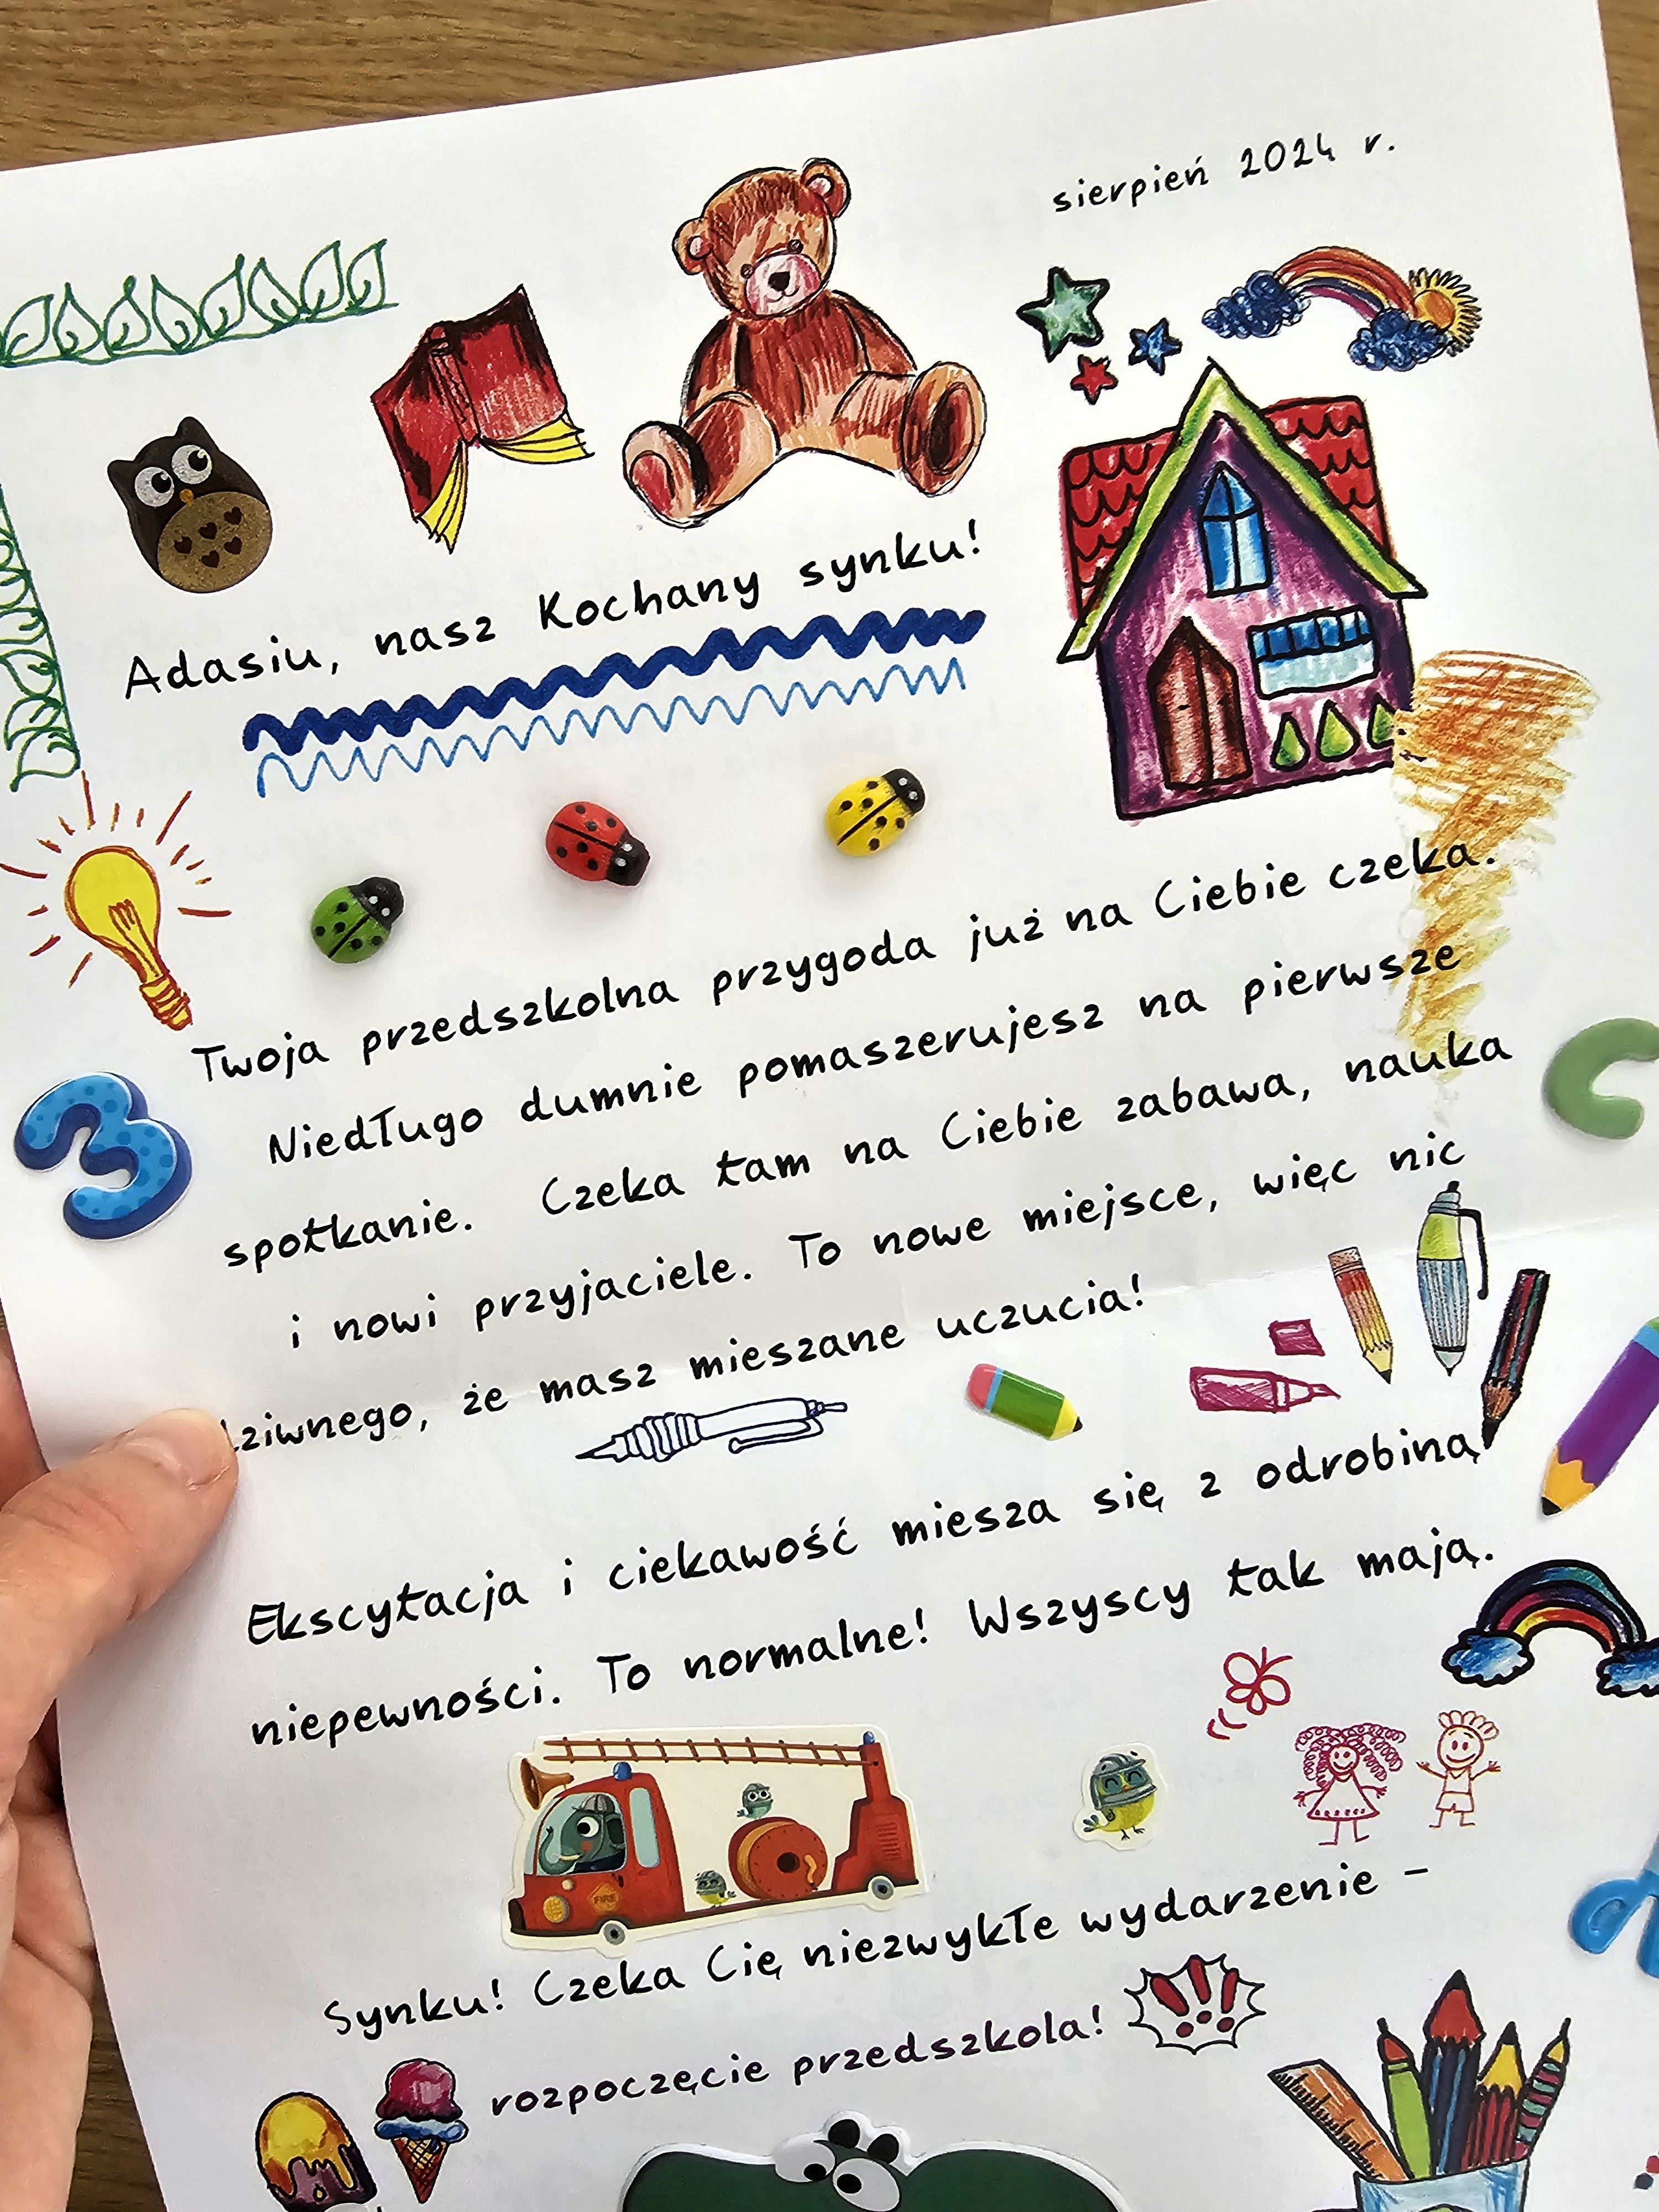 sierpień 2024 r.
Adasiu, nasz Kochany synku!
Twoja przedszkolna przygoda już na Ciebie czeka.
Niedługo dumnie pomaszerujesz na pierwsze
spotkanie. Czeka tam na Ciebie zabawa, nauka
i nowi przyjaciele. To nowe miejsce, więc nic
dziwnego, że masz mieszane uczucia!
Ekscytacja i ciekawość miesza się z odrobiną
niepewności. To normalne! Wszyscy tak mają.
Synku! Czeka Cię niezwykłe wydarzenie -
rozpoczęcie przedszkola!
3
C
FIRE
!!!